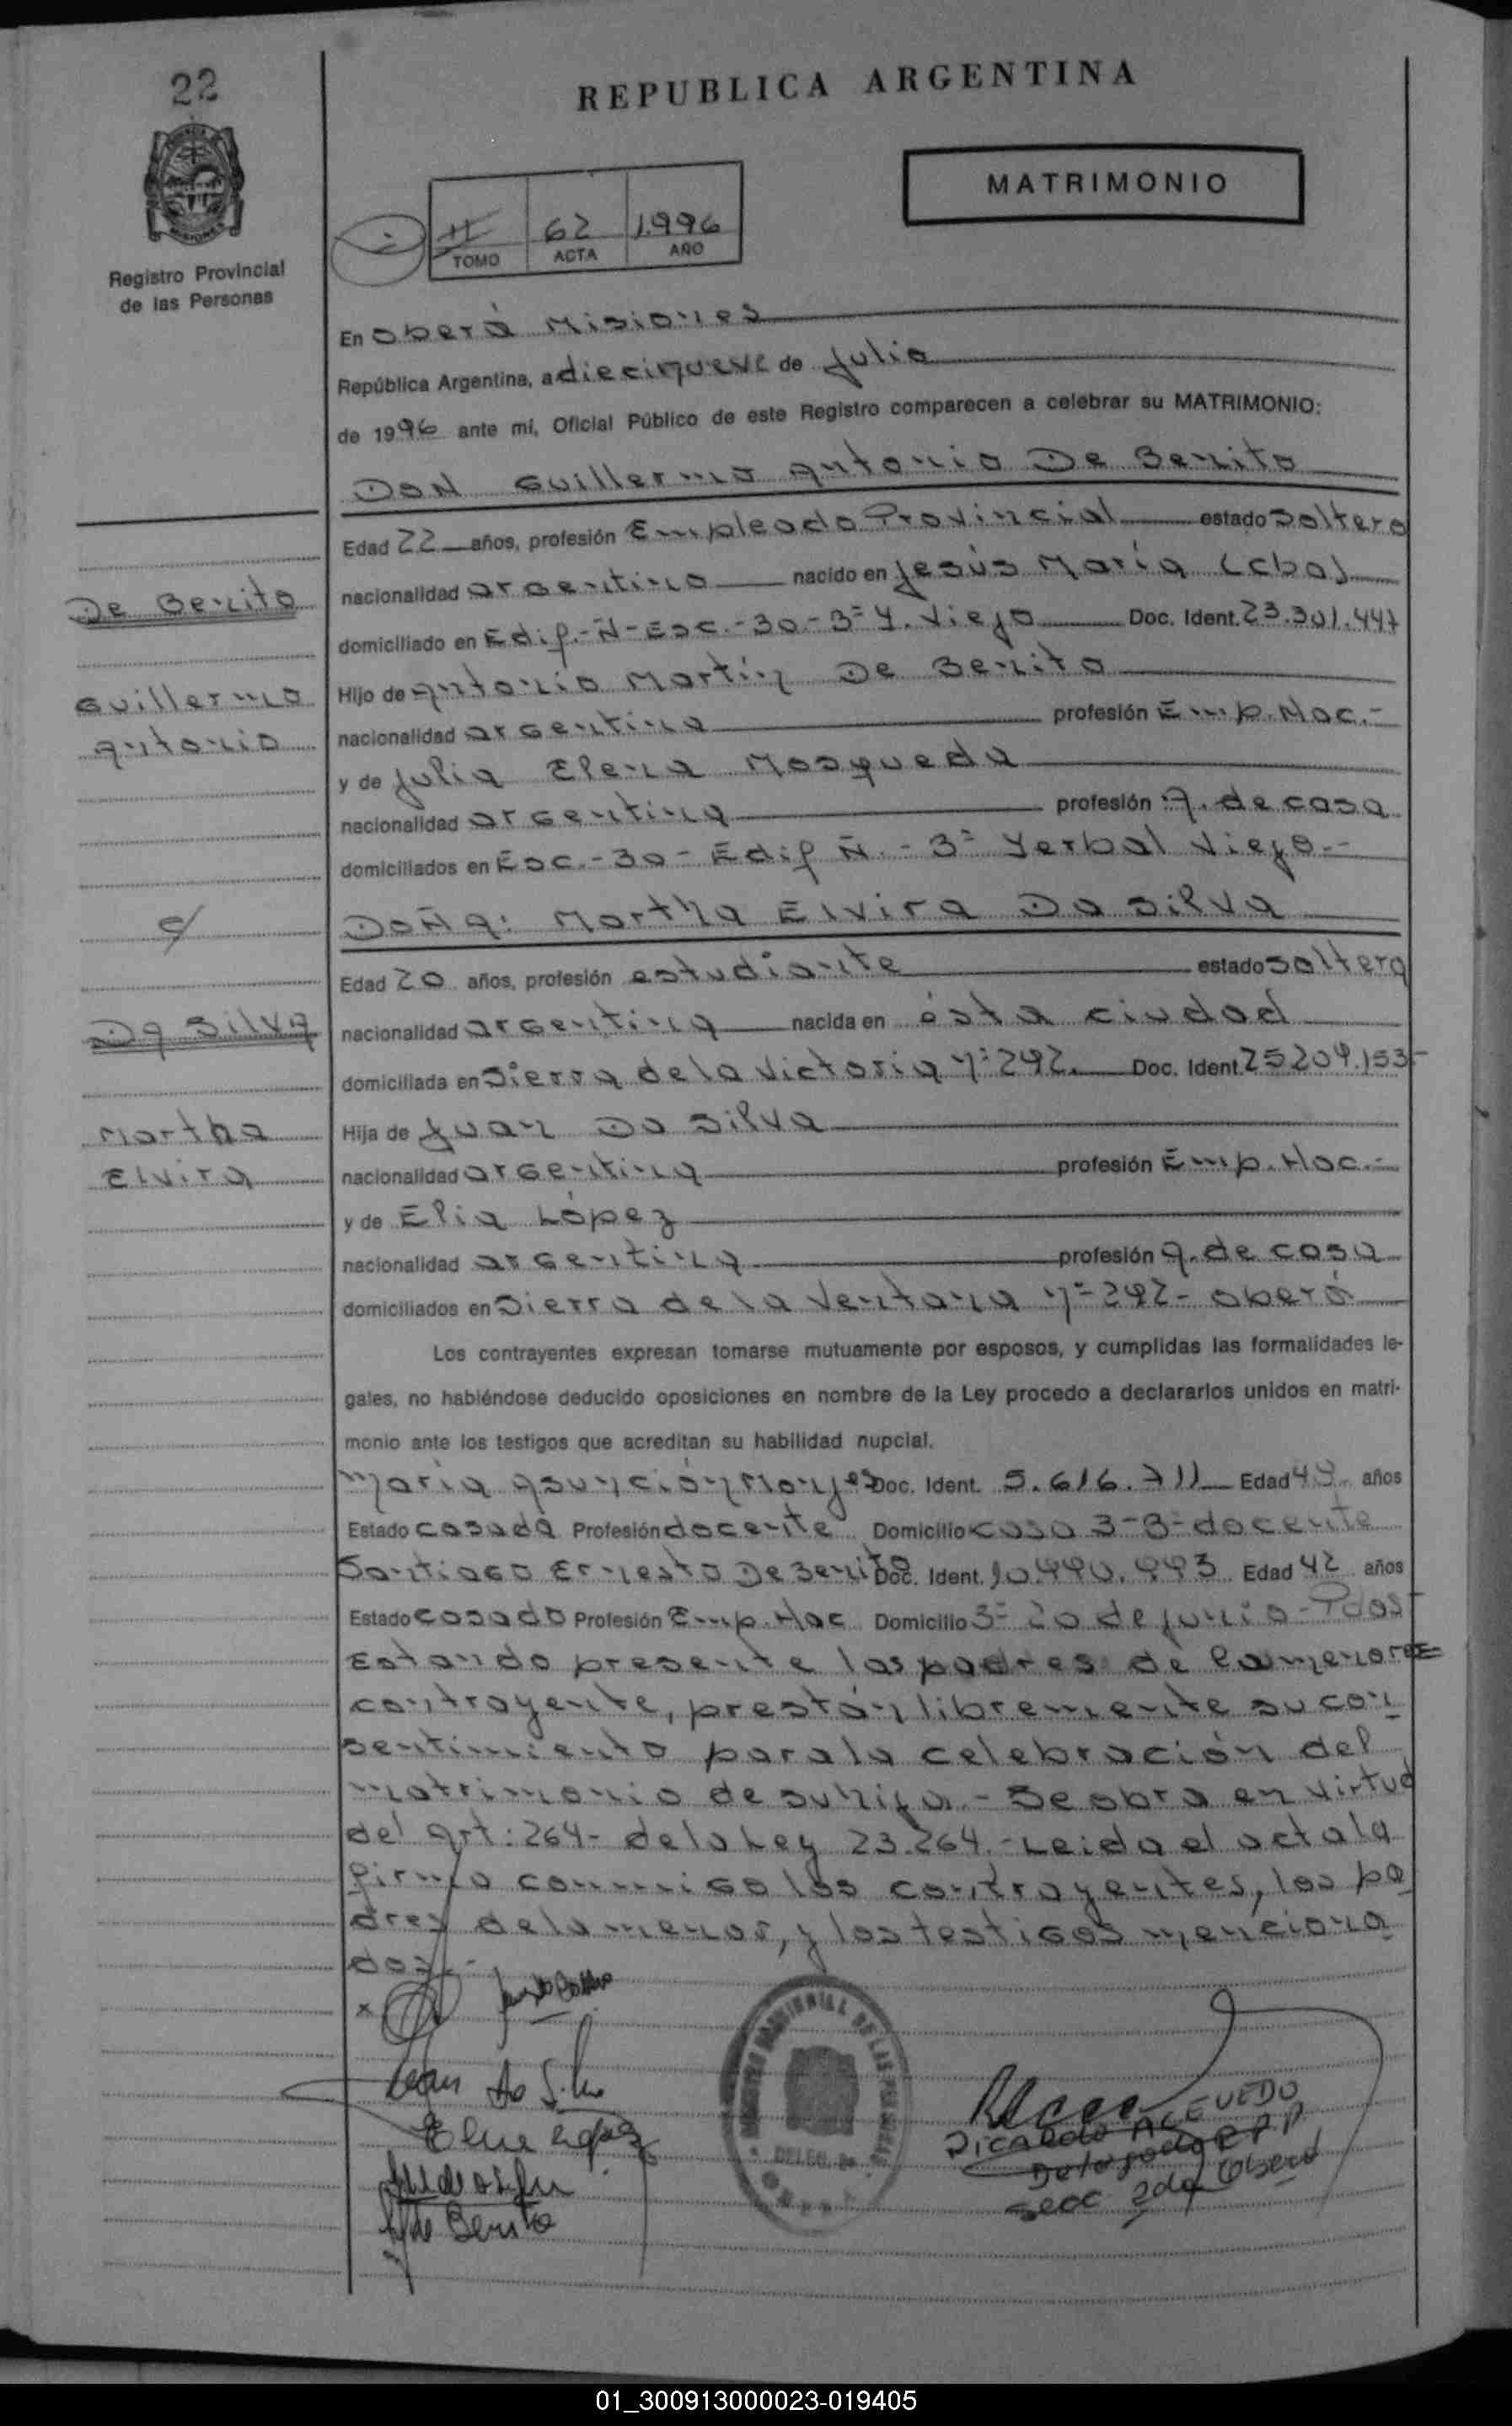 22
REPUBLICA ARGENTINA
MATRIMONIO
Registro Provincial
de las Personas
II 62 1.996
TOMO ACTA AÑO
En Oberá Misiones
República Argentina, a diecinueve de Julio
de 1996 ante mí, Oficial Público de este Registro comparecen a celebrar su MATRIMONIO:
DON Guillermo Antonio De Benito
Edad 22 años, profesión Empleado Provincial estado soltero
nacionalidad argentino nacido en Jesús María (cba)
De Benito
domiciliado en Edif.-Ñ-Esc.-30-3º Y. Viejo Doc. Ident. 23.301.447
Hijo de Antonio Martín De Benito
Guillermo
nacionalidad argentina profesión Emp. Nac.-
Antonio
y de Julia Elena Mosqueda
nacionalidad argentina profesión A. de casa
domiciliados en Esc.-30-Edif Ñ.-3º Yerbal Viejo.-
c/
DOÑA: Martha Elvira Da Silva
Edad 20 años, profesión estudiante estado soltera
Da Silva
nacionalidad argentina nacida en ésta ciudad
domiciliada en Sierra de la Victoria Nº 292. Doc. Ident. 25.204.153-
Martha
Hija de Juan Da Silva
Elvira
nacionalidad argentina profesión Emp. Nac.-
y de Elia López
nacionalidad argentina profesión A. de casa
domiciliados en Sierra de la Ventana Nº 292- Oberá
Los contrayentes expresan tomarse mutuamente por esposos, y cumplidas las formalidades le-
gales, no habiéndose deducido oposiciones en nombre de la Ley procedo a declararlos unidos en matri-
monio ante los testigos que acreditan su habilidad nupcial.
María Asunción Doc. Ident. 5.616.711 Edad 49 años
Estado casada Profesión docente Domicilio casa 3-Bº docente
Santiago Ernesto De Benito Doc. Ident. 10.990.993 Edad 42 años
Estado casado Profesión Emp. Nac Domicilio 3º 20 de junio - Pdas
Estando presente los padres de la menor
contrayente, prestán libremente su con
sentimiento para la celebración del
matrimonio de su hija.- Se obra en virtud
del Art: 264- de la Ley 23.264.- Leida el acta la
firma conmigo los contrayentes, los pa
dres de la menor, y los testigos menciona
dos.-
Juan Da Silva
de Benito
REGISTRO PROVINCIAL DE LAS PERSONAS
DELEG. 2a
OBERA
Ricardo ACEVEDO
Delegado R.P.P
Secc 2da Oberá
01_300913000023-019405